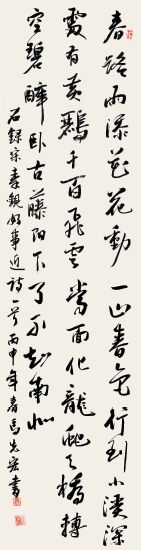 春路雨添花花動一山春色行到小溪深
處有黃鸝千百飛雲當面化龍蛇夭矯轉
空碧醉卧古藤陰下了不知南北
右録宋秦觀好事近詩一首丙申年春馬宏書